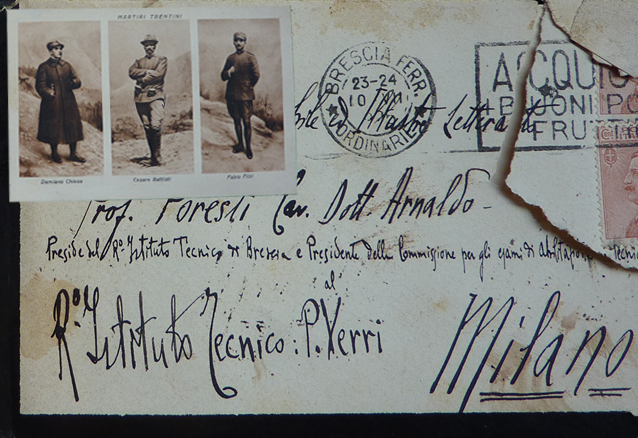 MARTIRI TRENTINI
Damiano Chiesa
Cesare Battisti
Fabio Filzi
BRESCIA FERR.
23-24
10
ORDINARIE
ACQUIS
BUONI PO
FRUTTI
Illustre Letterato
Prof. Foresti Cav. Dott. Arnaldo
Preside del R.° Istituto Tecnico di Brescia e Presidente della Commissione per gli esami di Tecnic
al
R.° Istituto Tecnico: P. Verri
Milano